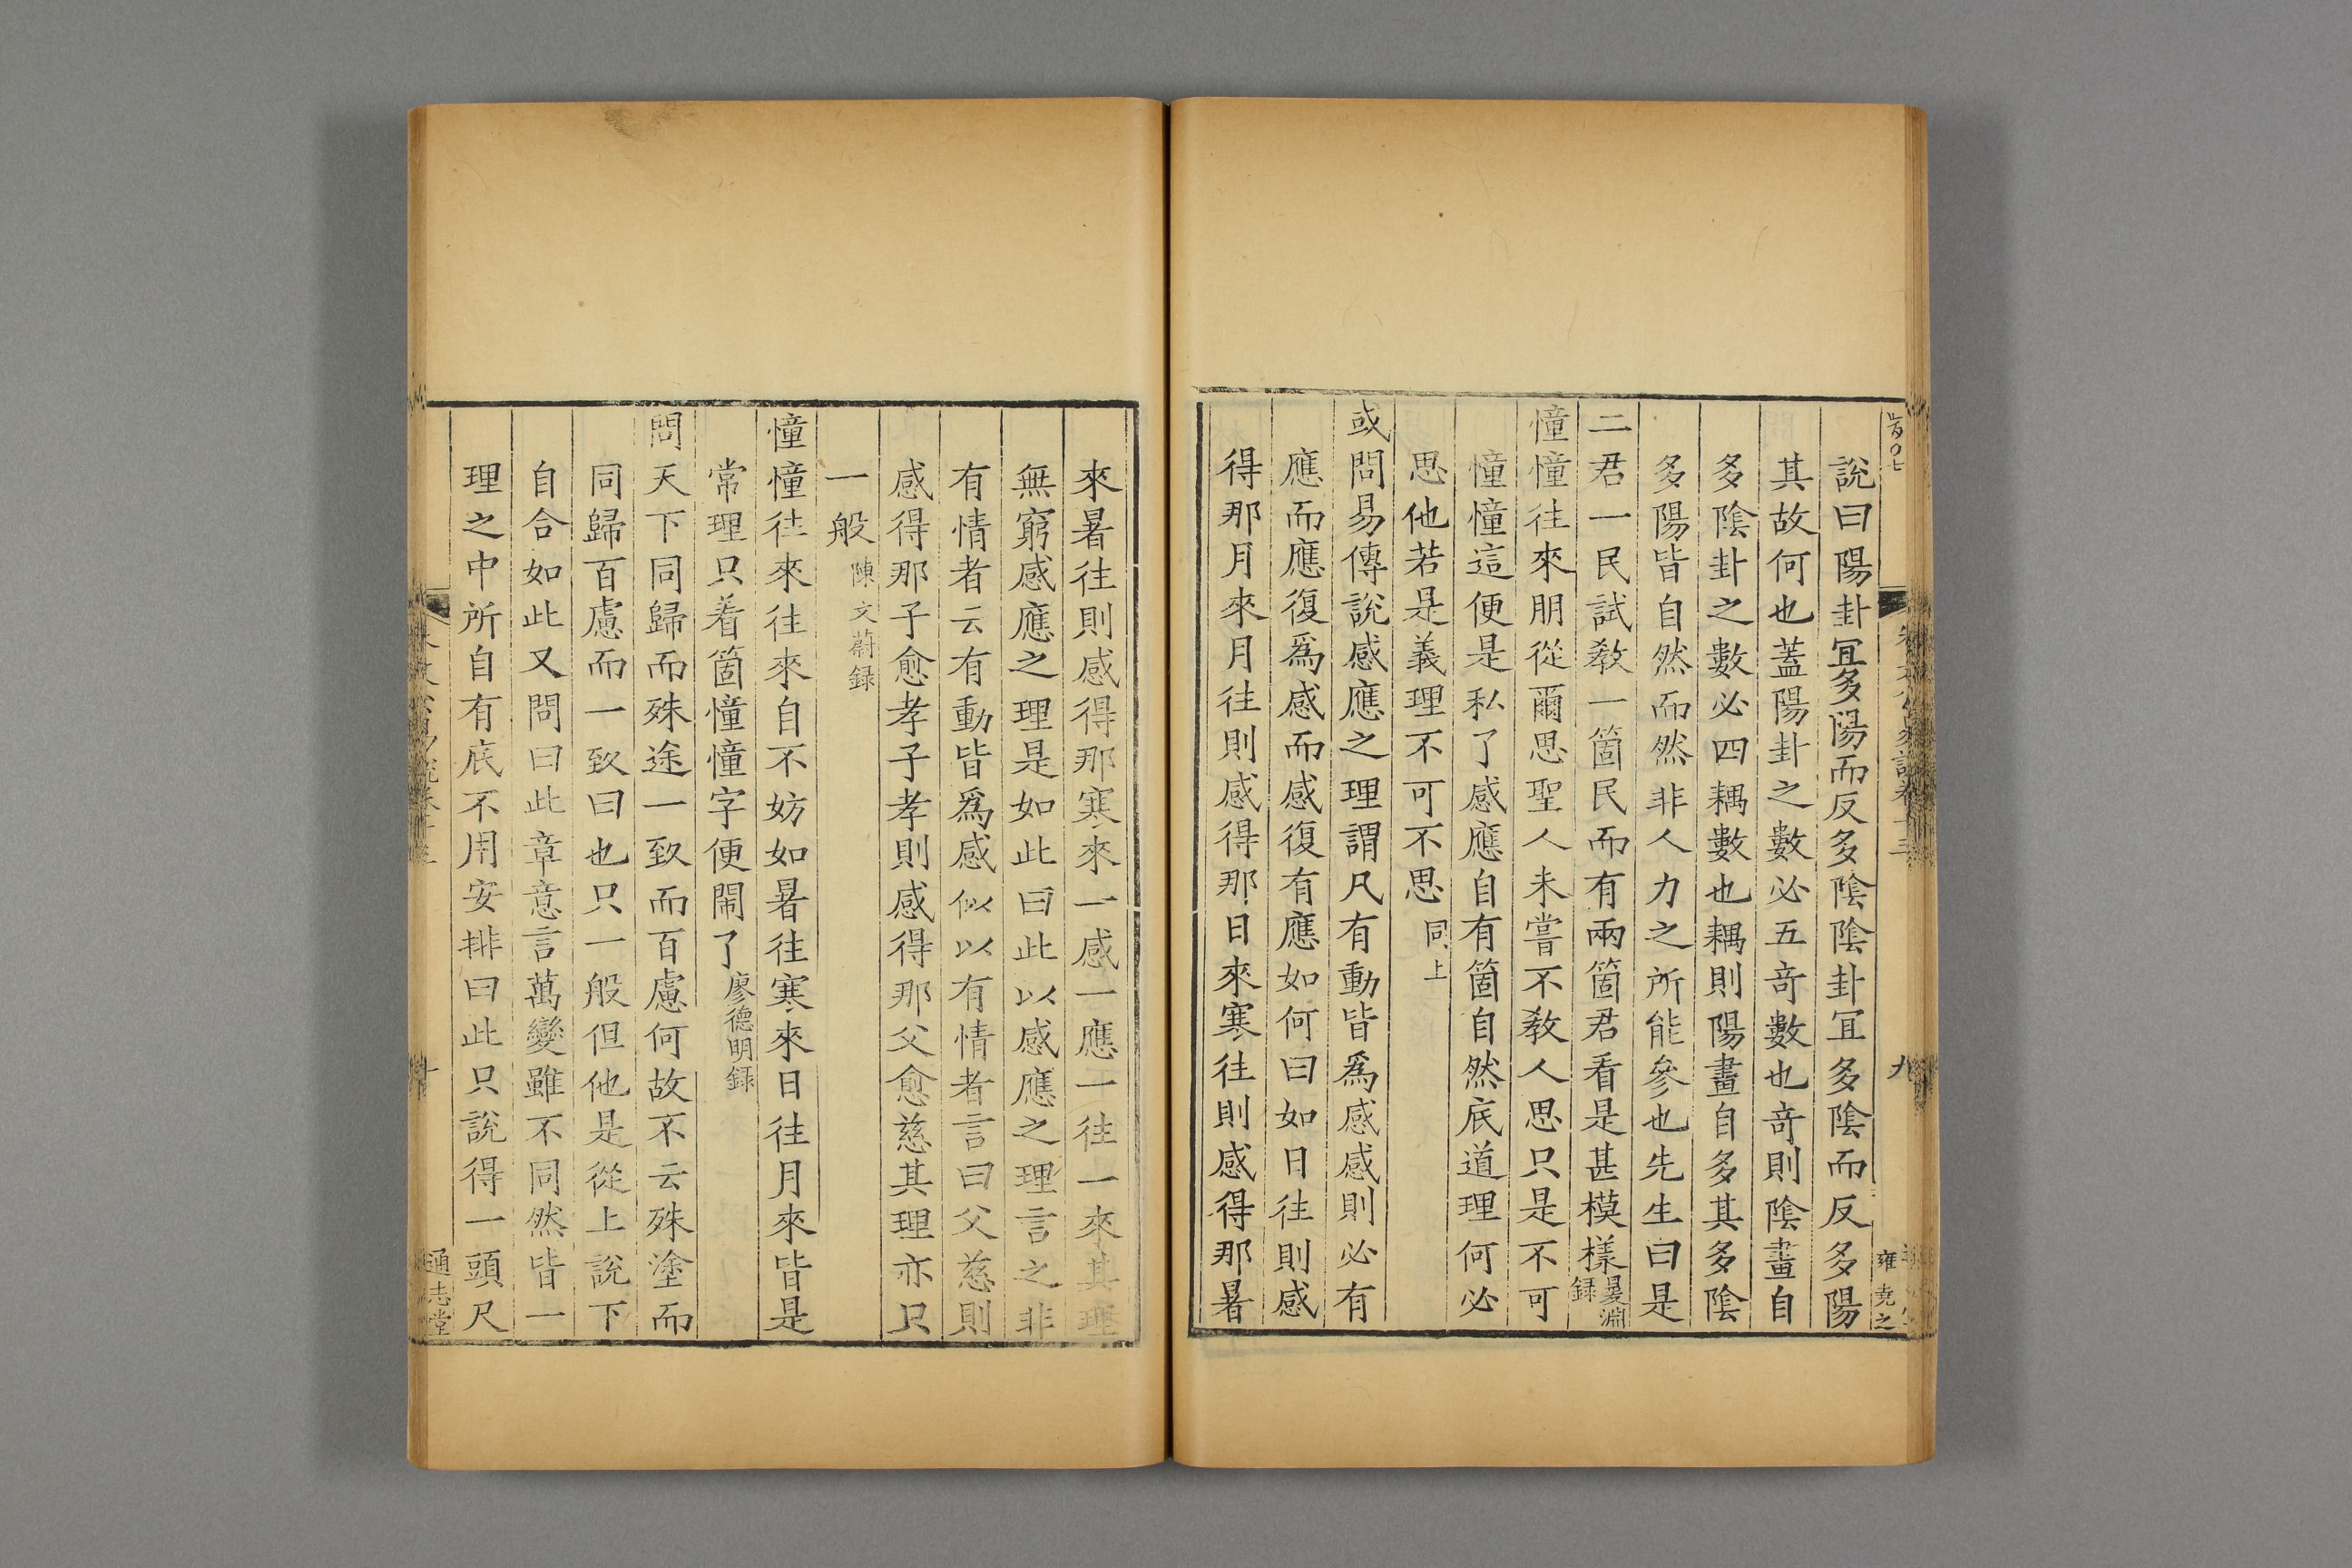 說曰陽卦冝多陽而反多陰陰卦冝多陰而反多陽
其故何也蓋陽卦之數必五竒數也竒則陰畫自
多陰卦之數必四耦數也耦則陽畫自多其多陰
多陽皆自然而然非人力之所能參也先生曰是
二君一民試敎一箇民而有兩箇君看是甚模樣㬊淵録
憧憧往來朋從爾思聖人未嘗不敎人思只是不可
憧憧這便是私了感應自有箇自然底道理何必
思他若是義理不可不思同上
或問易傳說感應之理謂凡有動皆爲感感則必有
應而應復爲感而感復有應如何曰如日往則感
得那月來月往則感得那日來寒往則感得那暑
來暑往則感得那寒來一感一應一往一來其理
無窮感應之理是如此曰此以感應之理言之非
有情者云有動皆爲感似以有情者言曰父慈則
感得那子愈孝子孝則感得那父愈慈其理亦只
一般陳文蔚録
憧憧往來往來自不妨如暑往寒來日往月來皆是
常理只着箇憧憧字便鬧了廖德明録
問天下同歸而殊途一致而百慮何故不云殊塗而
同歸百慮而一致曰也只一般但他是從上說下
自合如此又問曰此章意言萬變雖不同然皆一
理之中所自有底不用安排曰此只說得一頭尺
九
雍尭之
十
通志堂